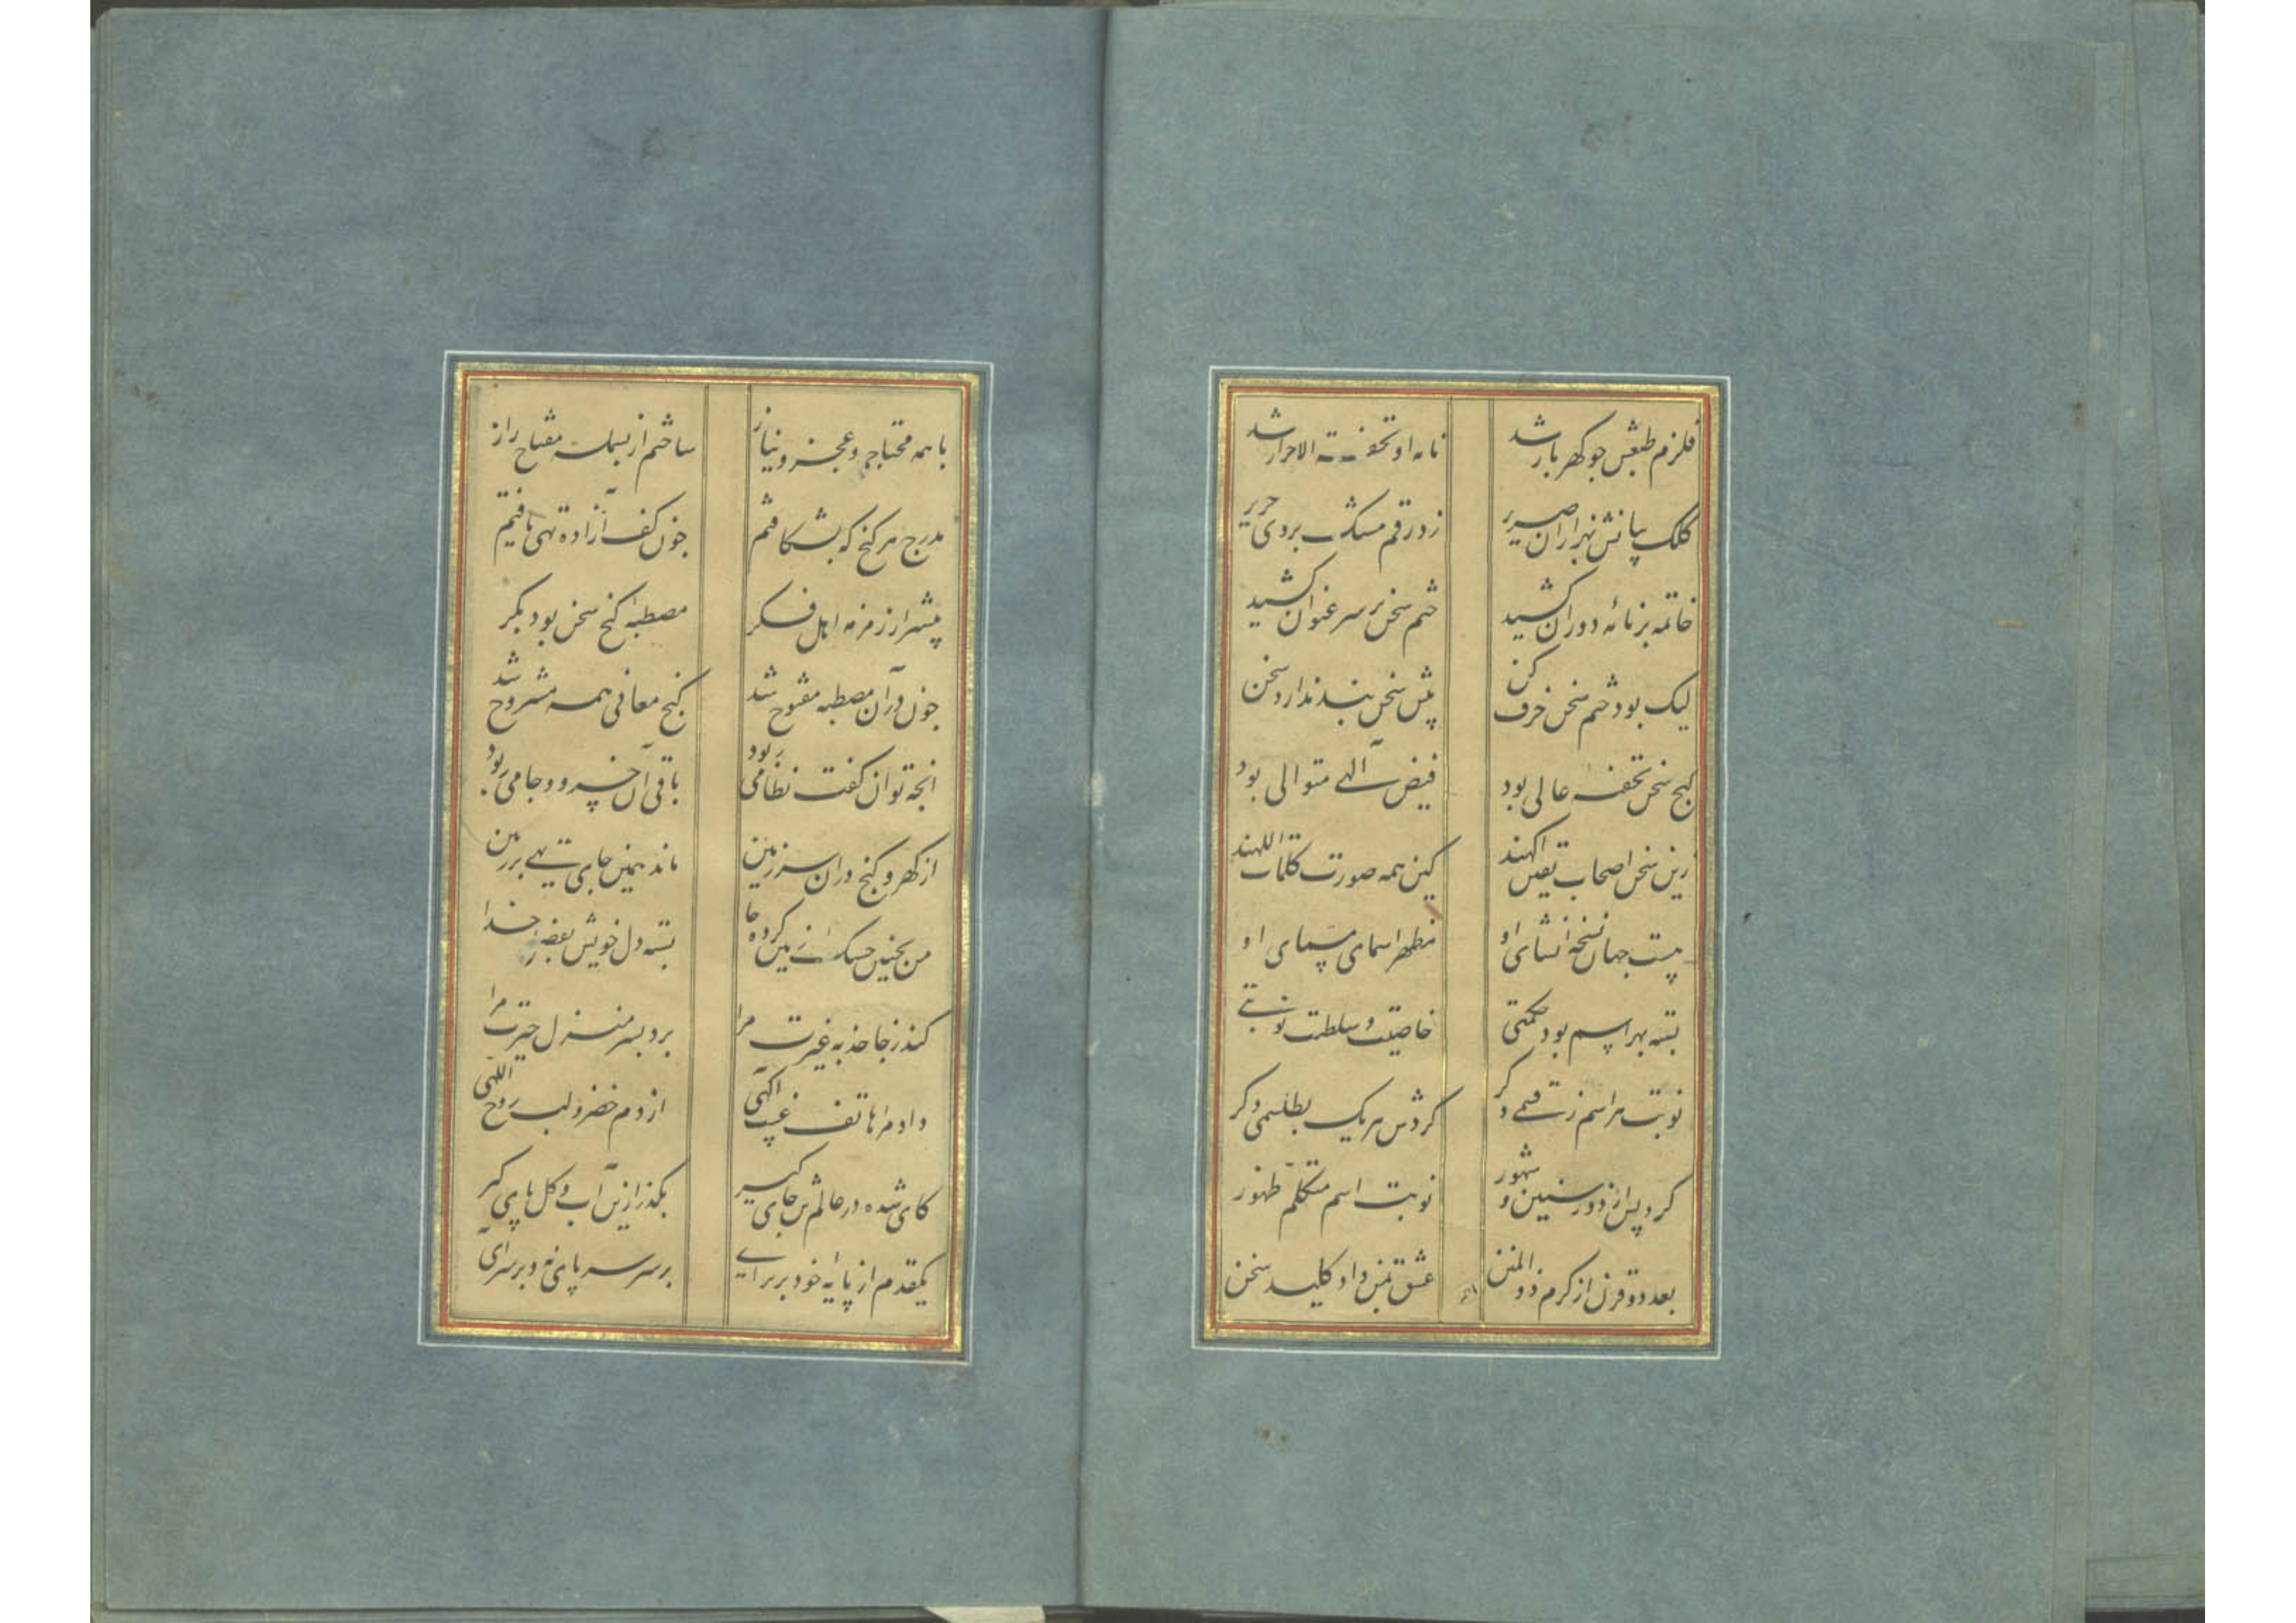 قلزم طبعش چو گهربار شد
نامه او تحفة الاحرار شد
کلک بیانش بهزاران صریر
زد رقم مشک بروی حریر
خاتمه بر نامه دوران کشید
ختم سخن بر سر عنوان کشید
لیک بود ختم سخن حرف کن
پیش سخن بند ندارد سخن
گنج سخن تحفه عالی بود
فیض الهی متوالی بود
زین سخن اصحاب یقین آگهند
کین همه صورت کلمات اللهند
هست جهان نسخه انشای او
مظهر اسمای مسمای او
بسته بهر اسم بود حکمتی
خاصیت و سلطنت نوبتی
نوبت هر اسم ز قسمی دگر
گردش هر یک بطلسمی دگر
کرد پس از دور سنین و شهور
نوبت اسم متکلم ظهور
بعد دو قرن از کرم ذو المنن
عشق بمن داد کلید سخن
با همه محتاجی و عجز و نیاز
ساختم از بسمله مفتاح راز
مدرج هر گنج که بشکافتم
چون کف آزاده تهی یافتم
پیشتر از زمزمه اهل فکر
مصطبه گنج سخن بود بکر
چون در آن مصطبه مفتوح شد
گنج معانی همه مشروح شد
آنچه توان گفت نظامی ربود
باقی آن خسرو و جامی ربود
از گهر و گنج در آن سرزمین
ماند همین جای تهی بر زمین
من بچنین خشک زمین کرده جا
بسته دل خویش بفضل خدا
کند ز جا جذبه غیرت مرا
برد بسر منزل حیرت مرا
داد مرا هاتف غیب آگهی
از دم خضر و لب روح اللهی
کای شده در عالم تن جای گیر
بگذر ازین آب و گل پای گیر
یکقدم از پایه خود برتر آی
بر سر سر پای نه و بر سر آی